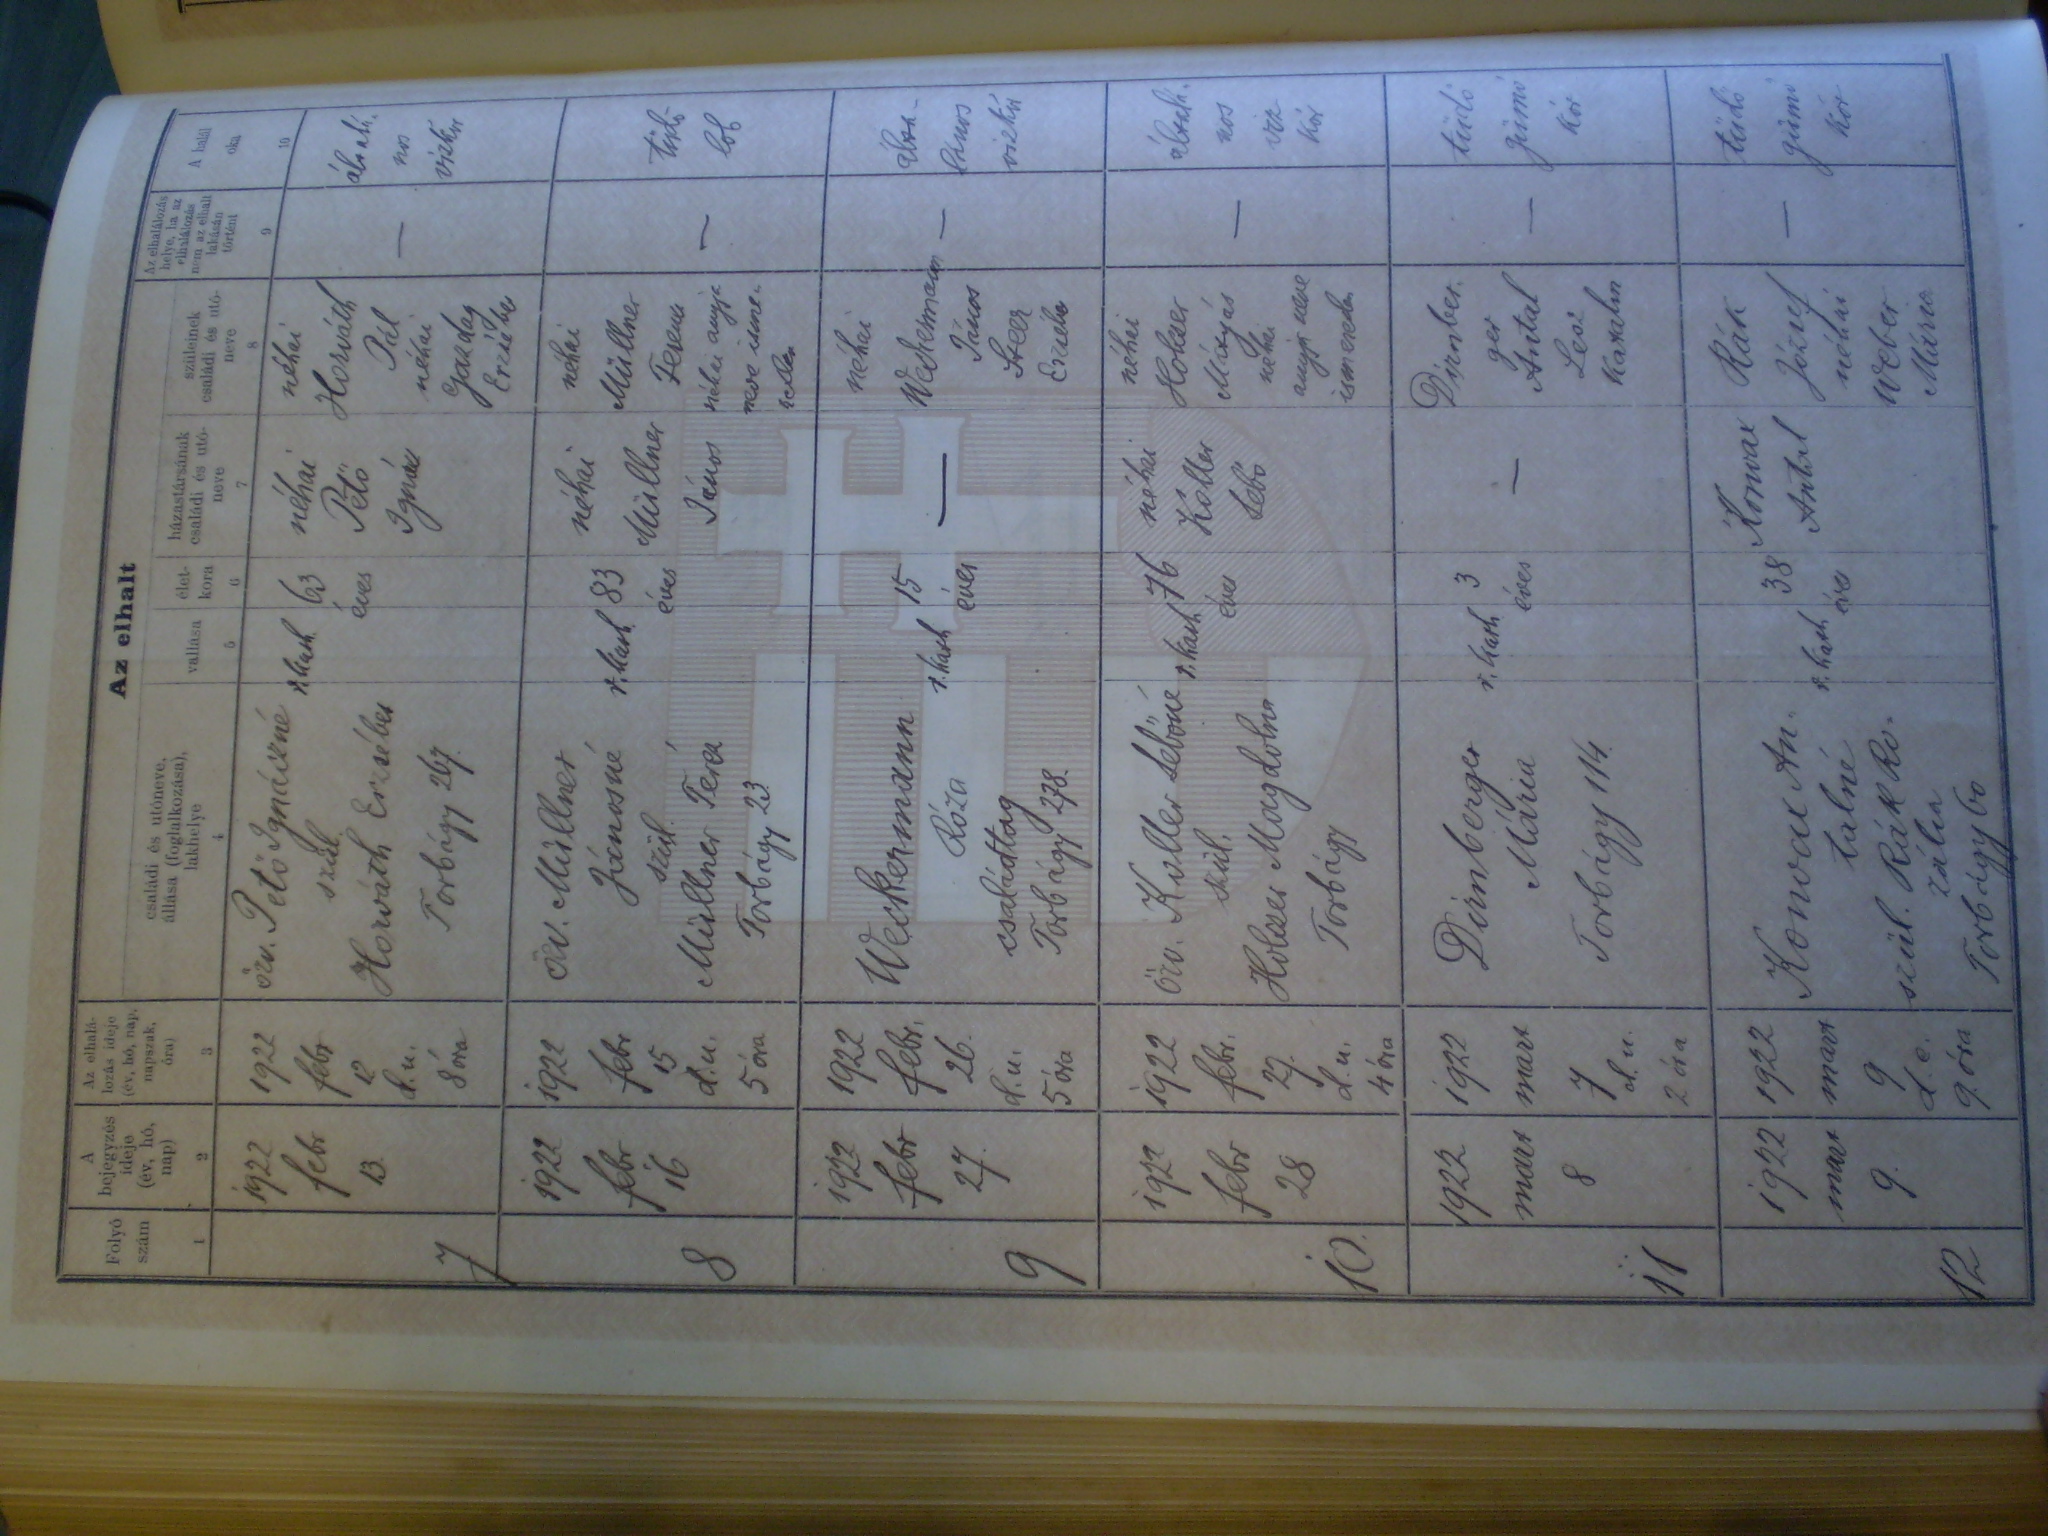 Az elhalt
Folyó
szám
A
bejegyzés
ideje
(év, hó,
nap)
Az elhalá-
lozás ideje
(év, hó, nap,
napszak,
óra)
családi és utóneve,
állása (foglalkozása),
lakhelye
vallása
élet-
kora
házastársának
családi és utó-
neve
szüleinek
családi és utó-
neve
Az elhalálozás
helye, ha az
elhalálozás
nem az elhalt
lakásán
történt
A halál
oka
1
2
3
4
5
6
7
8
9
10
7
1922
febr
13.
1922
febr
12
d.u.
8 óra
özv. Pető Ignáczné
szül.
Horváth Erzsébet
Torbágy 267.
r. kath.
63
éves
néhai
Pető
Ignác
néhai
Horváth
Pál
néhai
Erzsébet
—
no
vízkór
8
1922
febr
16
1922
febr
15
d.u.
5 óra
özv. Müllner
Jánosné
szül.
Müllner Teréz
Torbágy 23.
r. kath.
83
éves
néhai
Müllner
János
néhai
Müllner
Ferenc
néhai anyja
neve isme-
retlen
—
tüdő
lob
9
1922
febr
27.
1922
febr.
26.
d.u.
5 óra
Weckermann
Róza
családtag
Torbágy 278.
r. kath
15
éves
—
néhai
Weckermann
János
Steer
Erzsébet
—
vízkór
10.
1922
febr
28
1922
febr.
27.
d.u.
4 óra
özv. Koller Sebőné
szül.
Holczer Magdolna
Torbágy
r. kath
76
éves
néhai
Koller
Sebő
néhai
Holczer
Mátyás
néhai
anyja neve
ismeretlen
—
nos
víz
kór
11
1922
mart
8
1922
mart
7
d.u.
2 óra
Dirnberger
Mária
Torbágy 114.
r. kath
3
éves
—
Dirnber.
ger
Antal
Katalin
—
tüdő
gümő
kór
12
1922
mart
9.
1922
mart
9
d.e.
9 óra
Konrax An.
talné
szül. Rák Ro.
zália
Torbágy 60
r. kath
38
éve
Konrax
Antal
Rák
József
néhai
Weber
Mária
—
tüdő
gümő
kór